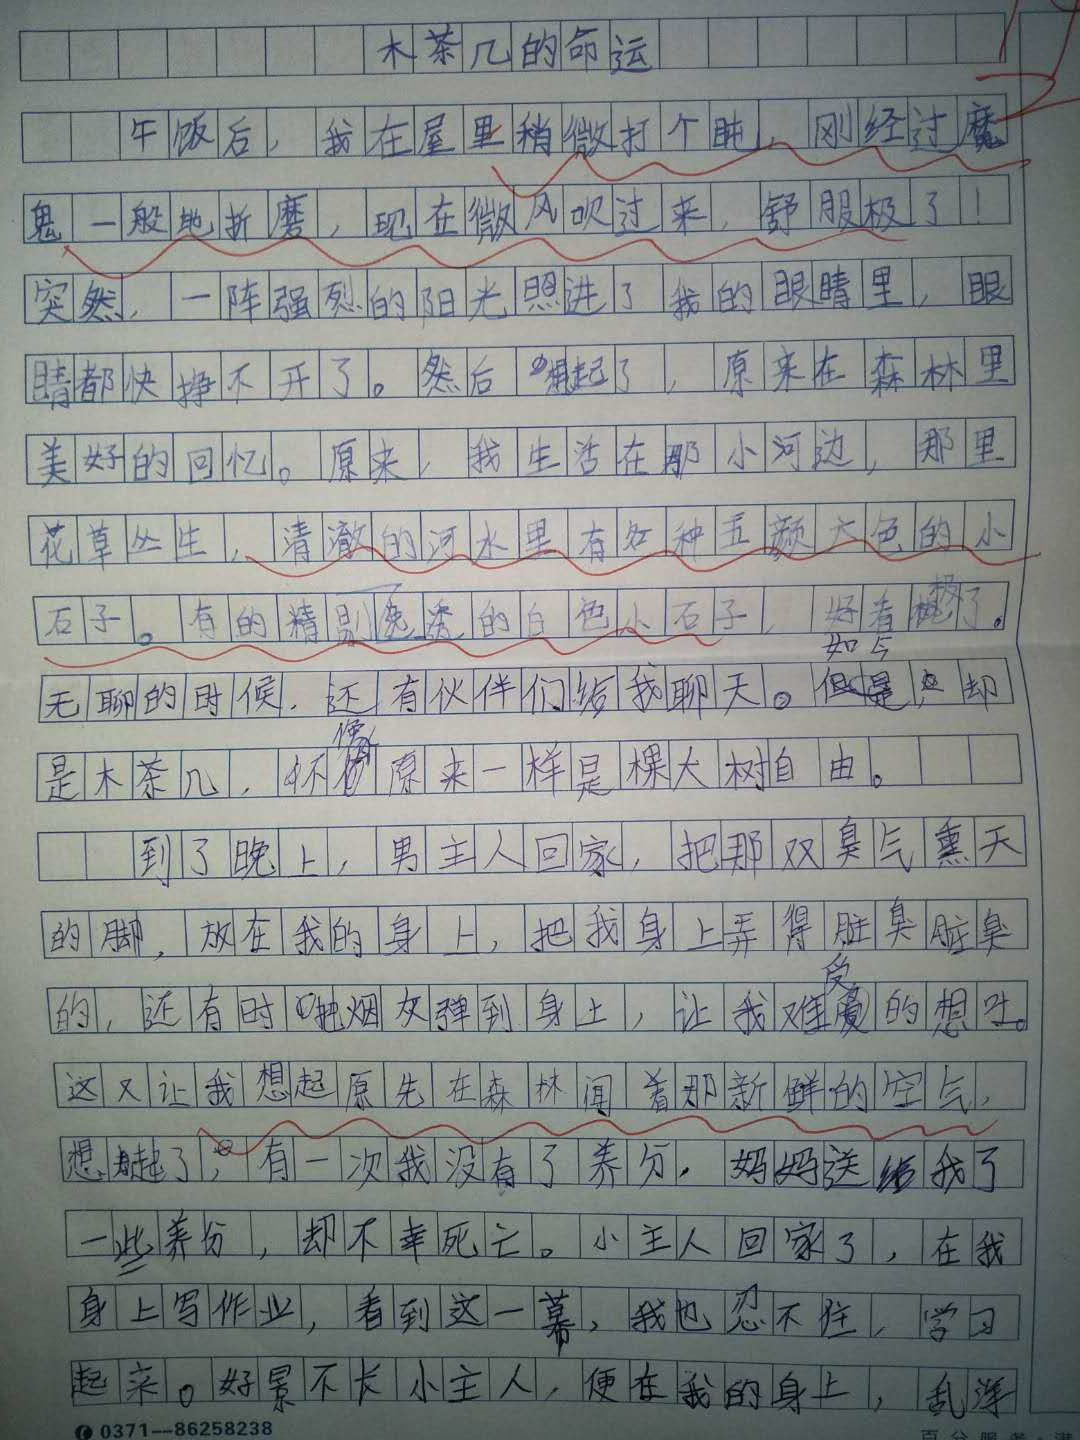 木茶几的命运
午饭后，我在屋里稍微打个盹，刚经过魔
鬼一般地折磨，现在微风吹过来，舒服极了！
突然，一阵强烈的阳光照进了我的眼睛里，眼
睛都快挣不开了。然后想起了，原来在森林里
美好的回忆。原来，我生活在那小河边，那里
花草丛生，清澈的河水里有各种五颜六色的小
石子。有的精剔透的白色小石子，好看极了。
无聊的时候，还有伙伴们给我聊天。如今却
是木茶几，不像原来一样是棵大树自由。
到了晚上，男主人回家，把那双臭气熏天
的脚，放在我的身上，把我身上弄得脏臭脏臭
的，还有时把烟灰弹到身上，让我难受的想吐。
这又让我想起原先在森林闻着那新鲜的空气，
想起了，有一次我没有了养分，妈妈送给我了
一些养分，却不幸死亡。小主人回家了，在我
身上写作业，看到这一幕，我也忍不住，学习
起来。好景不长小主人，便在我的身上，乱
0371—86258238